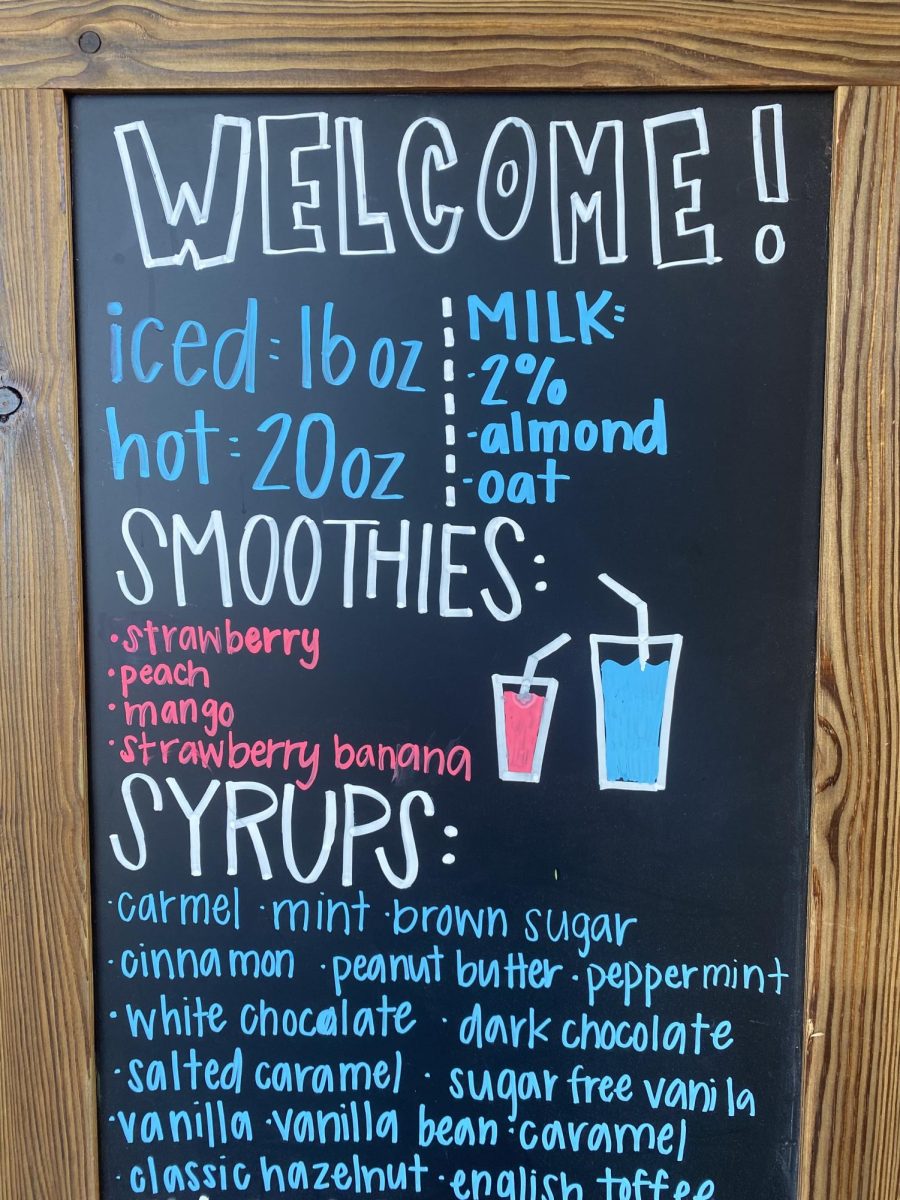 WELCOME!
iced: 16 oz
hot: 20 oz
MILK:
·2%
·almond
·oat
SMOOTHIES:
·strawberry
·peach
·mango
·strawberry banana
SYRUPS:
·carmel ·mint ·brown sugar
·cinnamon ·peanut butter ·peppermint
·white chocolate ·dark chocolate
·salted caramel ·sugar free vanila
·vanilla ·vanilla bean ·caramel
·classic hazelnut ·english toffee